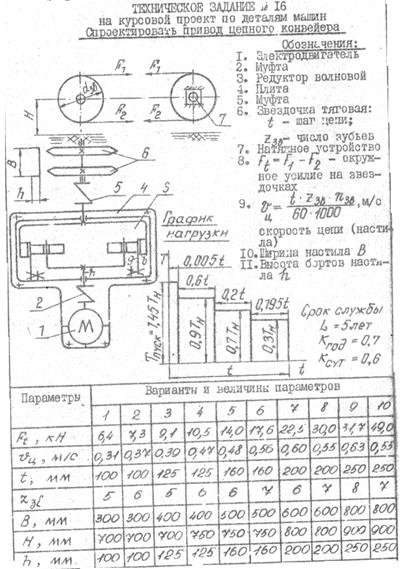 ТЕХНИЧЕСКОЕ ЗАДАНИЕ № 16
на курсовой проект по деталям машин
Спроектировать привод цепного конвейера
Обозначения:
1. Электродвигатель
2. Муфта
3. Редуктор волновой
4. Плита
5. Муфта
6. Звездочка тяговая:
t - шаг цепи;
zзв - число зубьев
7. Натяжное устройство
8. Ft = F1 - F2 - окружное усилие на звездочках
9. vц = t · zзв · nзв / 60·1000, м/с
скорость цепи (настила)
10. Ширина настила B
11. Высота бортов настила h
F1 F1
F2 F2
dзв
H
7
B
6
h
5 4
h g b
2
1 M
График нагрузки
T
0,005t
0,6t
0,2t
0,195t
Tпуск=1,45Tн
0,9Tн
0,7Tн
0,3Tн
t t
Срок службы
L = 5 лет
Kгод = 0,7
Kсут = 0,6
Параметры Варианты и величины параметров
1 2 3 4 5 6 7 8 9 10
Ft, кН 6,4 7,3 9,1 10,5 14,0 17,6 22,5 30,0 31,7 49,0
vц, м/с 0,31 0,37 0,39 0,47 0,48 0,56 0,60 0,55 0,63 0,55
t, мм 100 100 125 125 160 160 200 200 250 250
zзв 5 6 5 6 6 7 6 7 8 7
B, мм 300 300 400 400 500 500 600 600 800 800
H, мм 700 700 700 750 750 750 800 800 900 900
h, мм 100 100 125 125 160 160 200 200 250 250